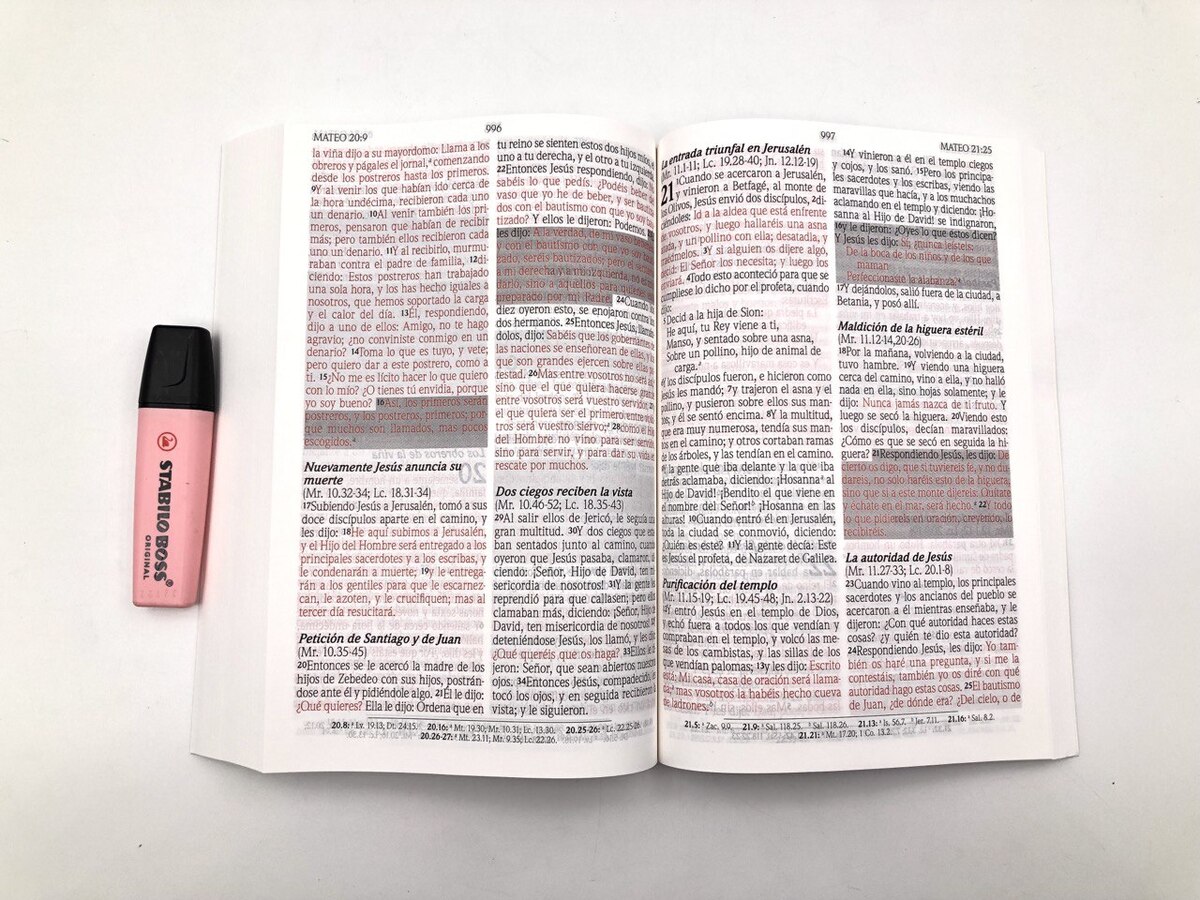 MATEO 20:9
996
la viña dijo a su mayordomo: Llama a los
obreros y págales el jornal,ª comenzando
desde los postreros hasta los primeros.
9Y al venir los que habían ido cerca de
la hora undécima, recibieron cada uno
un denario. 10Al venir también los pri-
meros, pensaron que habían de recibir
más; pero también ellos recibieron cada
uno un denario. 11Y al recibirlo, murmu-
raban contra el padre de familia, 12di-
ciendo: Estos postreros han trabajado
una sola hora, y los has hecho iguales a
nosotros, que hemos soportado la carga
y el calor del día. 13Él, respondiendo,
dijo a uno de ellos: Amigo, no te hago
agravio; ¿no conviniste conmigo en un
denario? 14Toma lo que es tuyo, y vete;
pero quiero dar a este postrero, como a
ti. 15¿No me es lícito hacer lo que quiero
con lo mío? ¿O tienes tú envidia, porque
yo soy bueno? 16Así, los primeros serán
postreros, y los postreros, primeros; por-
que muchos son llamados, mas pocos
escogidos.ª
Nuevamente Jesús anuncia su
muerte
(Mr. 10.32-34; Lc. 18.31-34)
17Subiendo Jesús a Jerusalén, tomó a sus
doce discípulos aparte en el camino, y
les dijo: 18He aquí subimos a Jerusalén,
y el Hijo del Hombre será entregado a los
principales sacerdotes y a los escribas, y
le condenarán a muerte; 19y le entrega-
rán a los gentiles para que le escarnez-
can, le azoten, y le crucifiquen; mas al
tercer día resucitará.
Petición de Santiago y de Juan
(Mr. 10.35-45)
20Entonces se le acercó la madre de los
hijos de Zebedeo con sus hijos, postrán-
dose ante él y pidiéndole algo. 21Él le dijo:
¿Qué quieres? Ella le dijo: Ordena que en
tu reino se sienten estos dos hijos míos, el
uno a tu derecha, y el otro a tu izquierda.
22Entonces Jesús respondiendo, dijo: No
sabéis lo que pedís. ¿Podéis beber del
vaso que yo he de beber, y ser bautiza-
dos con el bautismo con que yo soy bau-
tizado? Y ellos le dijeron: Podemos.
les dijo: A la verdad, de mi vaso beberéis,
y con el bautismo con que yo soy bauti-
zado, seréis bautizados; pero el sentaros
a mi derecha y a mi izquierda, no es mío
darlo, sino a aquellos para quienes está
preparado por mi Padre. 24Cuando los
diez oyeron esto, se enojaron contra los
dos hermanos. 25Entonces Jesús, llamán-
dolos, dijo: Sabéis que los gobernantes de
las naciones se enseñorean de ellas, y los
que son grandes ejercen sobre ellas po-
testad. 26Mas entre vosotros no será así,
sino que el que quiera hacerse grande
entre vosotros será vuestro servidor,
el que quiera ser el primero entre voso-
tros será vuestro siervo; 28como el Hijo
del Hombre no vino para ser servido,
sino para servir, y para dar su vida en
rescate por muchos.
Dos ciegos reciben la vista
(Mr. 10.46-52; Lc. 18.35-43)
29Al salir ellos de Jericó, le seguía una
gran multitud. 30Y dos ciegos que esta-
ban sentados junto al camino, cuando
oyeron que Jesús pasaba, clamaron, di-
ciendo: ¡Señor, Hijo de David, ten mi-
sericordia de nosotros! 31Y la gente les
reprendió para que callasen; pero ellos
clamaban más, diciendo: ¡Señor, Hijo de
David, ten misericordia de nosotros!
deteniéndose Jesús, los llamó, y les dijo:
¿Qué queréis que os haga? 33Ellos le di-
jeron: Señor, que sean abiertos nuestros
ojos. 34Entonces Jesús, compadecido, les
tocó los ojos, y en seguida recibieron la
vista; y le siguieron.
20.8: ª Lv. 19.13; Dt. 24.15. 20.16: ª Mt. 19.30; Mr. 10.31; Lc. 13.30. 20.25-26: ª Lc. 22.25-26.
20.26-27: ª Mt. 23.11; Mr. 9.35; Lc. 22.26.
997
MATEO 21:25
La entrada triunfal en Jerusalén
(Mr. 11.1-11; Lc. 19.28-40; Jn. 12.12-19)
21 1Cuando se acercaron a Jerusalén,
y vinieron a Betfagé, al monte de
los Olivos, Jesús envió dos discípulos, 2di-
ciéndoles: Id a la aldea que está enfrente
de vosotros, y luego hallaréis una asna
atada, y un pollino con ella; desatadla, y
traédmelos. 3Y si alguien os dijere algo,
decid: El Señor los necesita; y luego los
enviará. 4Todo esto aconteció para que se
cumpliese lo dicho por el profeta, cuando
dijo:
5Decid a la hija de Sion:
He aquí, tu Rey viene a ti,
Manso, y sentado sobre una asna,
Sobre un pollino, hijo de animal de
carga.ª
6Y los discípulos fueron, e hicieron como
Jesús les mandó; 7y trajeron el asna y el
pollino, y pusieron sobre ellos sus man-
tos; y él se sentó encima. 8Y la multitud,
que era muy numerosa, tendía sus man-
tos en el camino; y otros cortaban ramas
de los árboles, y las tendían en el camino.
9Y la gente que iba delante y la que iba
detrás aclamaba, diciendo: ¡Hosannaª al
Hijo de David! ¡Bendito el que viene en
el nombre del Señor!ᵇ ¡Hosanna en las
alturas! 10Cuando entró él en Jerusalén,
toda la ciudad se conmovió, diciendo:
¿Quién es éste? 11Y la gente decía: Este
es Jesús el profeta, de Nazaret de Galilea.
Purificación del templo
(Mr. 11.15-19; Lc. 19.45-48; Jn. 2.13-22)
12Y entró Jesús en el templo de Dios,
y echó fuera a todos los que vendían y
compraban en el templo, y volcó las me-
sas de los cambistas, y las sillas de los
que vendían palomas; 13y les dijo: Escrito
está: Mi casa, casa de oración será llama-
da;ª mas vosotros la habéis hecho cueva
de ladrones.ᵇ
14Y vinieron a él en el templo ciegos
y cojos, y los sanó. 15Pero los principa-
les sacerdotes y los escribas, viendo las
maravillas que hacía, y a los muchachos
aclamando en el templo y diciendo: ¡Ho-
sanna al Hijo de David! se indignaron,
16y le dijeron: ¿Oyes lo que éstos dicen?
Y Jesús les dijo: Sí; ¿nunca leísteis:
De la boca de los niños y de los que
maman
Perfeccionaste la alabanza?ª
17Y dejándolos, salió fuera de la ciudad, a
Betania, y posó allí.
Maldición de la higuera estéril
(Mr. 11.12-14,20-26)
18Por la mañana, volviendo a la ciudad,
tuvo hambre. 19Y viendo una higuera
cerca del camino, vino a ella, y no halló
nada en ella, sino hojas solamente; y le
dijo: Nunca jamás nazca de ti fruto. Y
luego se secó la higuera. 20Viendo esto
los discípulos, decían maravillados:
¿Cómo es que se secó en seguida la hi-
guera? 21Respondiendo Jesús, les dijo: De
cierto os digo, que si tuviereis fe, y no du-
dareis, no solo haréis esto de la higuera,
sino que si a este monte dijereis: Quítate
y échate en el mar, será hecho.ª 22Y todo
lo que pidiereis en oración, creyendo, lo
recibiréis.
La autoridad de Jesús
(Mr. 11.27-33; Lc. 20.1-8)
23Cuando vino al templo, los principales
sacerdotes y los ancianos del pueblo se
acercaron a él mientras enseñaba, y le
dijeron: ¿Con qué autoridad haces estas
cosas? ¿y quién te dio esta autoridad?
24Respondiendo Jesús, les dijo: Yo tam-
bién os haré una pregunta, y si me la
contestáis, también yo os diré con qué
autoridad hago estas cosas. 25El bautismo
de Juan, ¿de dónde era? ¿Del cielo, o de
21.5: ª Zac. 9.9. 21.9: ª Sal. 118.25. ᵇ Sal. 118.26. 21.13: ª Is. 56.7. ᵇ Jer. 7.11. 21.16: ª Sal. 8.2.
21.21: ª Mt. 17.20; 1 Co. 13.2.
STABILO BOSS®
ORIGINAL